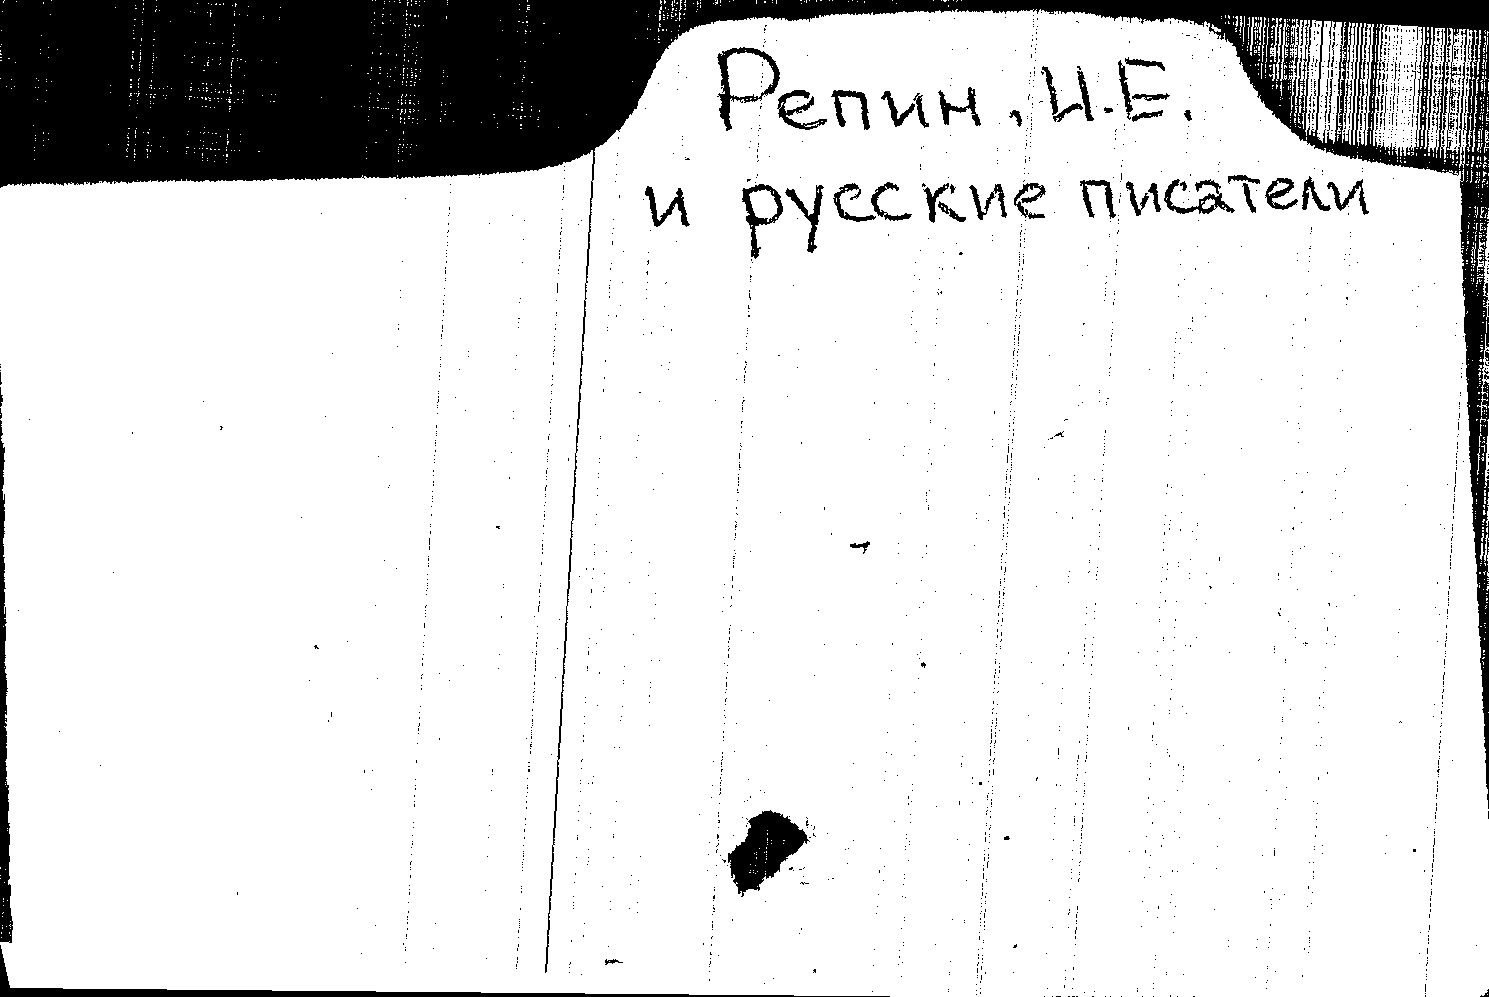 Репин, И.Е.
и русские писатели